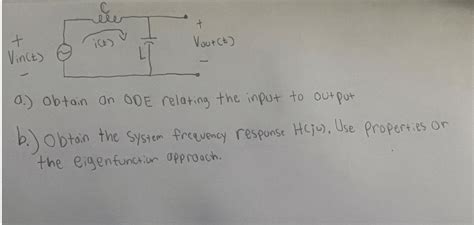 C
+
+
Vin(t)
i(t)
L
Vout(t)
-
-
a.) Obtain an ODE relating the input to output
b.) Obtain the system frequency response H(jω). Use properties or
the eigenfunction approach.